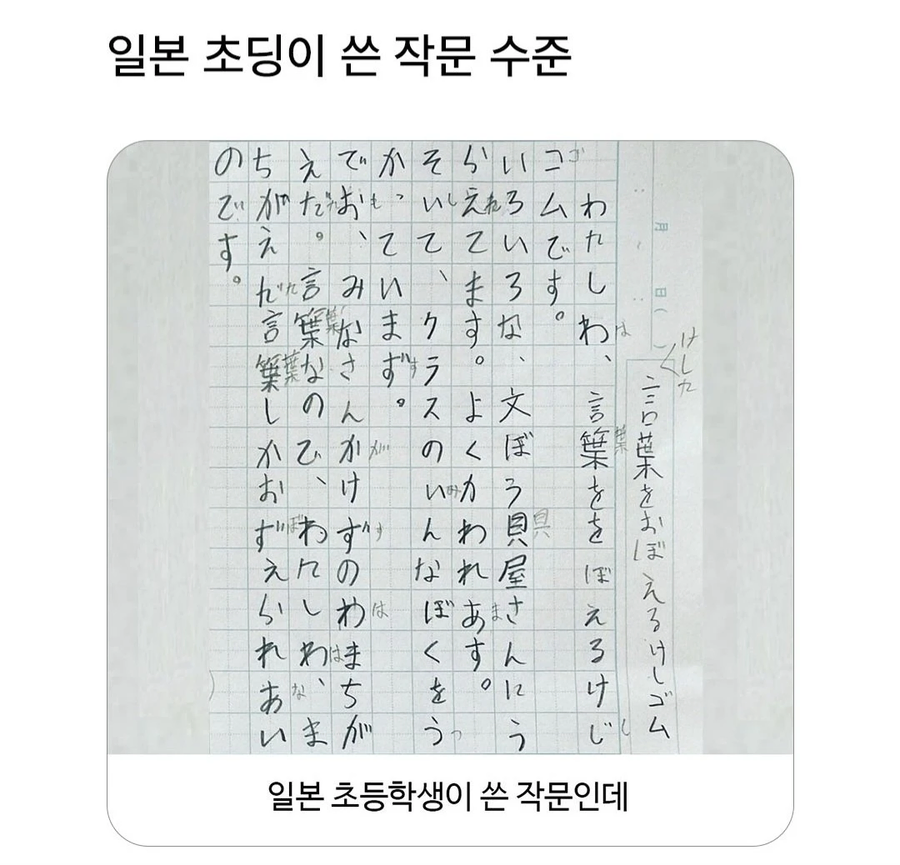 일본 초딩이 쓴 작문 수준
月 日（ ）
けした
言葉をおぼえるけしゴム
は 葉 し
わたしわ、言葉ををぼえるけじ
ゴ
コムです。
具
いろいろな、文ぼう貝屋さんにう
れ ま
らえてます。よくかわれあす。
し み つ
そいて、クラスのいんなぼくをう
す
かっていまず。
も が す は
でお、みなさんかけずのわまちが
葉 は
えだ。言葉なので、わたしわ、ま
た 葉 ぼ な
ちがえだ言葉しかおずえられあい
のです。
일본 초등학생이 쓴 작문인데